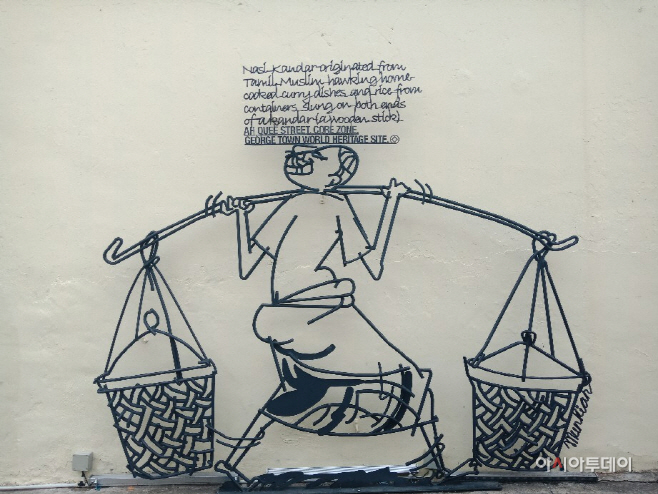 Nasi Kandar originated from
Tamil Muslim hawking home-
cooked curry dishes and rice from
containers slung on both ends
of a kandar (a wooden stick)
AH QUEE STREET. CORE ZONE.
GEORGE TOWN WORLD HERITAGE SITE. ©
아시아투데이